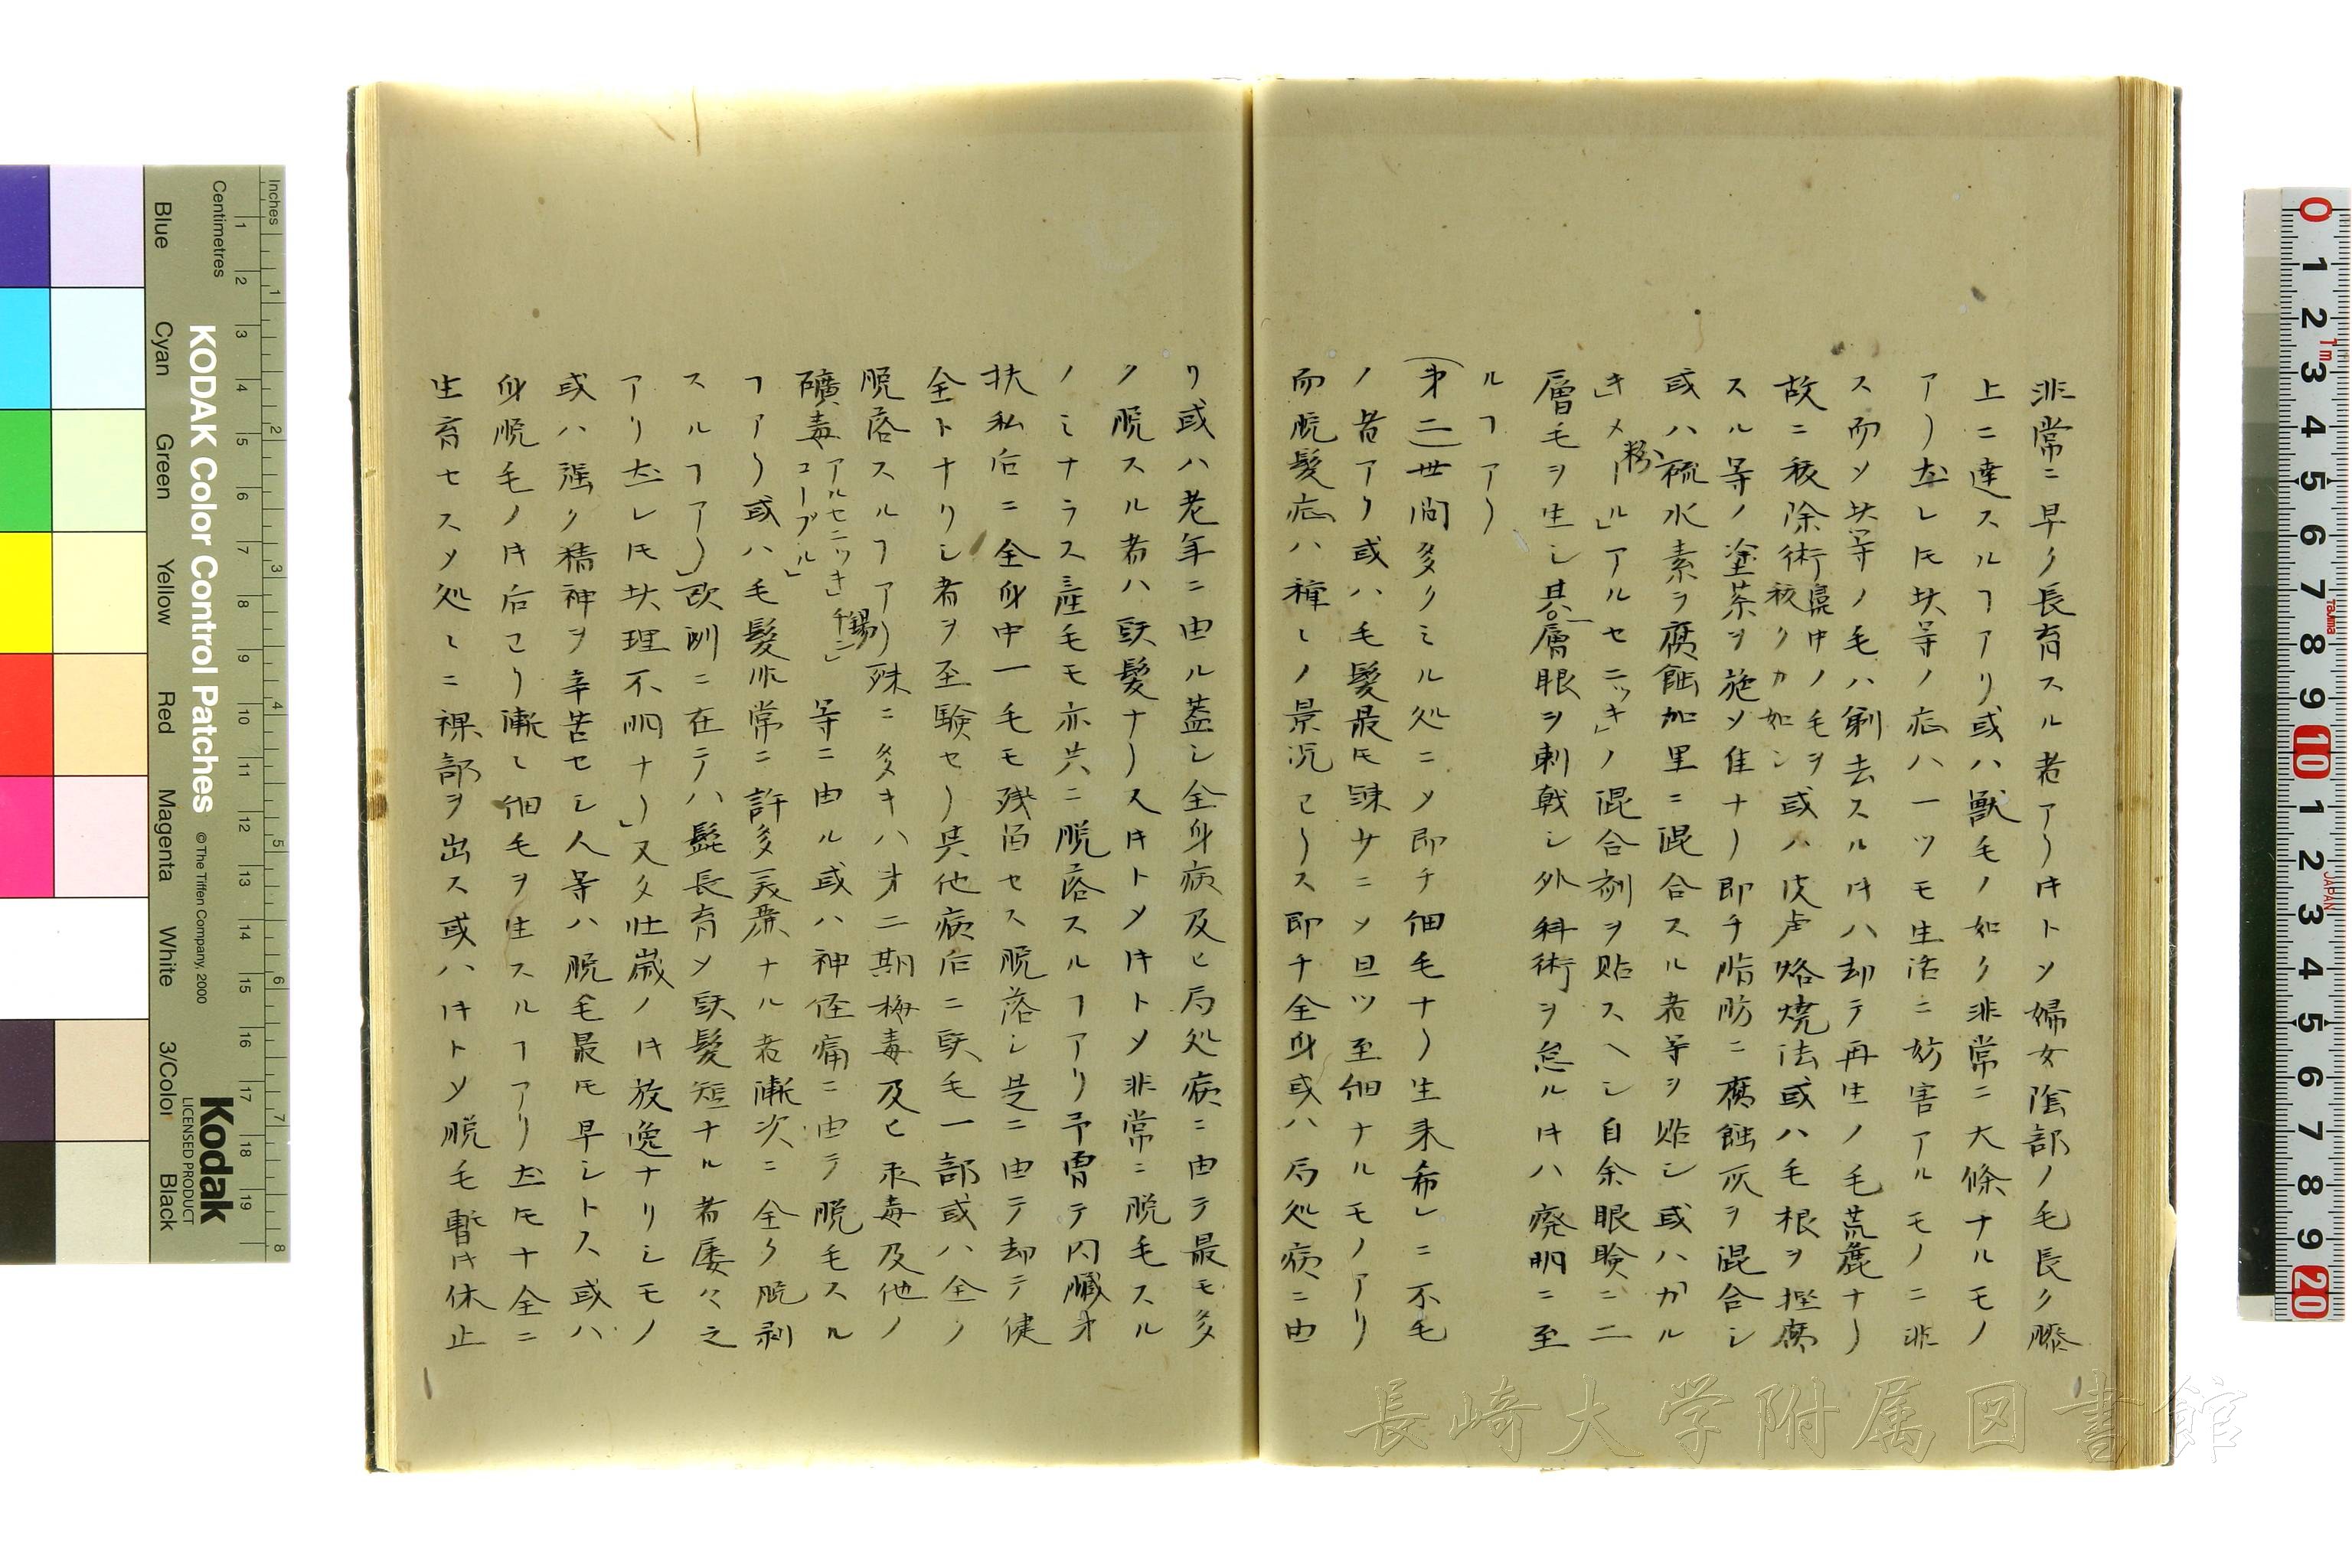 非常ニ早ク長育スル者アリ時トメ婦女陰部ノ毛長ク膝
上ニ達スルヿアリ或ハ獣毛ノ如ク非常ニ大條ナルモノ
アリ然レ𪜈此等ノ症ハ一ツモ生活ニ妨害アルモノニ非
ス而メ此等ノ毛ハ剃去スル時ハ却テ再生ノ毛荒麁ナリ
故ニ抜除術鼻中ノ毛ヲ抜クカ如シ或ハ皮膚烙焼法或ハ毛根ヲ
スル等ノ塗茶ヲ施ソ佳ナリ即チ脂肪ニ腐蝕灰ヲ混合シ
或ハ硫水素ヲ腐蝕加里ニ混合スル者等ヲ貼シ或ハカル
キ」メール」アルセニッキ」ノ混合剤ヲ貼スヘシ自余眼瞼ニ二
粉
層毛ヲ生シ其層眼ヲ刺戟シ外科術ヲ怠ル時ハ廃明ニ至
ルヿアリ
(第二)世間多クミル処ニメ即チ細毛ナリ生来希レニ不毛
ノ者アリ或ハ毛髪最𪜈疎サニメ且ツ至細ナルモノアリ
而脱髪症ハ種々ノ景况ヨリス即チ全身或ハ局処病ニ由
リ或ハ老年ニ由ル蓋シ全身病及ヒ局処病ニ由テ最モ多
ク脱スル者ハ頭髪ナリス時トメ時トメ非常ニ脱毛スル
ノミナラス産毛モ亦共ニ脱落スルヿアリ予曽テ内臓
扶私后ニ全身中一毛モ残留セス脱落シ是ニ由テ却テ健
全トナリシ者ヲ至験セリ其他病后ニ頭毛一部或ハ全ク
脱落スルヿアリ殊ニ多キハ第二期梅毒及ヒ汞毒及他ノ
礦毒アルセニッキ」錫
コーブル」 等ニ由ル或ハ神経痛ニ由テ脱毛スル
ヿアリ或ハ毛髪非常ニ許多美麗ナル者漸次ニ全ク脱剥
スルヿアリ」欧洲ニ在テハ髭長育メ頭髪短ナル者屡々之
アリ然レ𪜈此理不明ナリ」又タ壮歳ノ時放逸ナリシモノ
或ハ強ク精神ヲ辛苦セシ人等ハ脱毛最𪜈早シトス或ハ
身脱毛ノ時后ヨリ漸々細毛ヲ生スルヿアリ然𪜈十全ニ
生育セスメ処々ニ裸部ヲ出ス或ハ時トメ脱毛暫時休止
KODAK Color Control Patches
© The Tiffen Company, 2000
Kodak
LICENSED PRODUCT
Inches
Centimetres
Blue
Cyan
Green
Yellow
Red
Magenta
White
3/Color
Black
JAPAN
長崎大学附属図書館